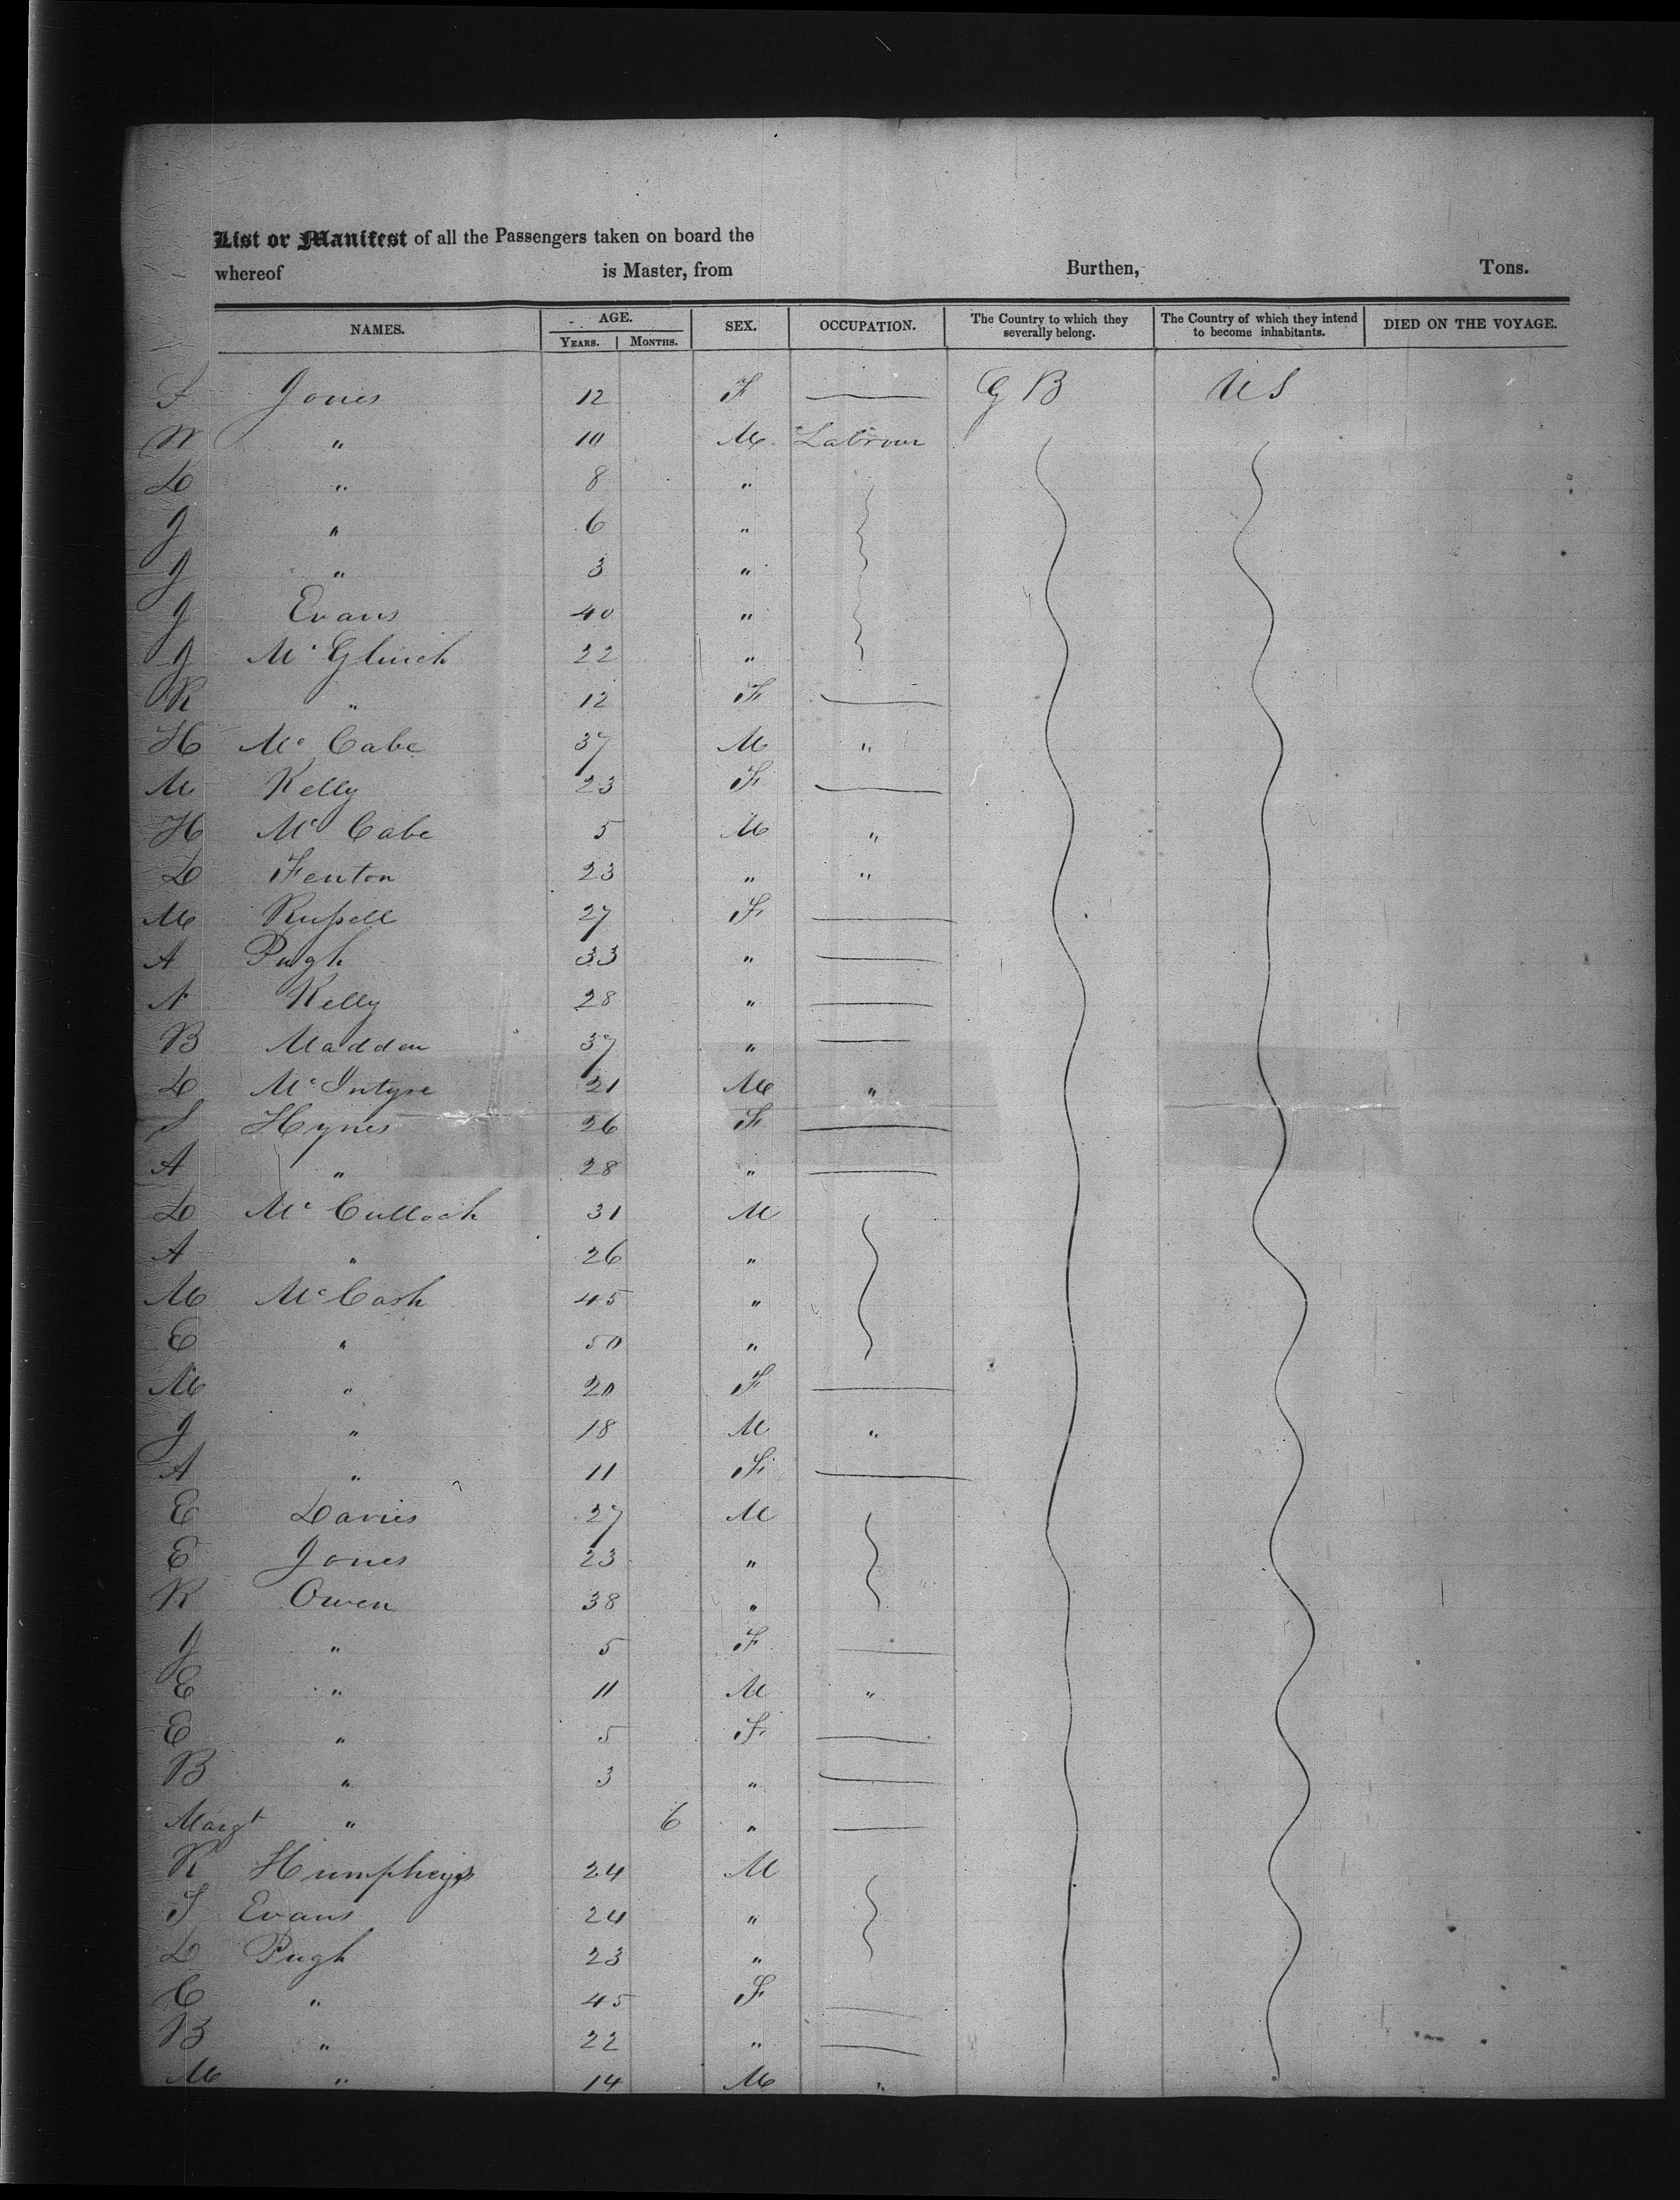 List or Manifest of all the Passengers taken on board the
whereof is Master, from Burthen, Tons.
NAMES. AGE. SEX. OCCUPATION. The Country to which they severally belong. The Country of which they intend to become inhabitants. DIED ON THE VOYAGE.
YEARS. MONTHS.
Jones 12 F — G B U S
W " 10 M Labour
D " 8 "
J " 6 "
J " 3 "
J Evans 40 "
J Mc Glinch 22 "
R " 12 F —
H Mc Cabe 37 M "
M Kelly 23 F —
H Mc Cabe 5 M "
D Fenton 23 " "
M Russell 27 F —
A Pugh 33 " —
N Kelly 28 " —
B Madden 37 " —
D McIntyre 21 M "
S Hynes 26 F —
A " 28 " —
D Mc Culloch 31 M
A " 26 "
M McCash 45 "
E " 50 "
M " 20 F —
J " 18 M "
A " 11 F —
E Davies 27 M
E Jones 23 "
R Owen 38 "
J " 5 F —
E " 11 M "
E " 5 F —
B " 3 " —
Margt " 6 " —
R Humphreys 24 M
S Evans 24 "
D Pugh 23 "
C " 45 F —
B " 22 " —
M " 14 M "